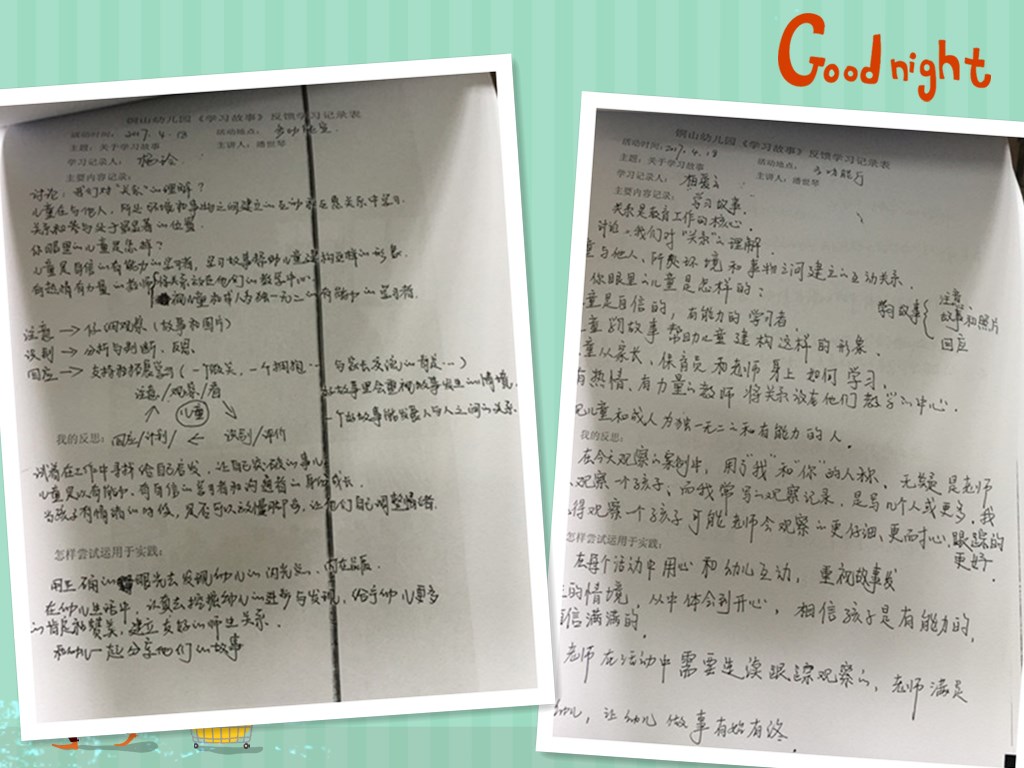 Good night
桐山幼儿园《学习故事》反馈学习记录表
活动时间：2017.4.18 活动地点：多功能室
主题：关于学习故事 主讲人：潘世琴
学习记录人：
主要内容记录：
讨论：我们对"关系"的理解？
儿童在与他人、所处环境和事物之间建立的互动
关系和参与处于的位置
你眼里的儿童是怎样？
儿童是自信的有能力的学习者，学习故事帮助儿童建构这样的形象
有热情有力量的教师将关系放在他们的教学中心
儿童和成人为独一无二的有能力的学习者
注意 → 仔细观察（故事和图片）
识别 → 分析与判断、反思、
回应 → 支持和拓展学习（一个微笑、一个拥抱… 与家长交流的有关…）
注意/观察/看 故事里会重视故事发生的情境
儿童 一个好故事能发展人与人之间的关系
我的反思： 回应/计划/ ← 识别/评价
试着在工作中寻找给自己启发，让自己
儿童是以有能力、有自信的学习者和沟通者的身份成长
当孩子有情绪的时候，是否可以放慢脚步，让他们自己调整情绪
怎样尝试运用于实践：
用正确的眼光去发现幼儿的闪光点、内在品质
在幼儿生活中，认真去挖掘幼儿的进步与发现，给予幼儿更多
的肯定和赞美，建立友好的师生关系.
和幼儿一起分享他们的故事
桐山幼儿园《学习故事》反馈学习记录表
活动时间：2017.4.18 活动地点：多功能厅
主题：关于学习故事 主讲人：潘世琴
学习记录人：
主要内容记录： 学习故事.
关系是教育工作的核心.
讨论：我们对"关系"的理解
童与他人、所处环境和事物之间建立的互动关系.
你眼里的儿童是怎样的：
童是自信的，有能力的学习者
故事帮助儿童建构这样的形象.
童从家长，保育员和老师身上如何学习.
有热情、有力量的教师将关系放在他们教学的中心.
学习故事 注意
故事和照片
回应
儿童和成人为独一无二的和有能力的人.
我的反思：
在今天观察的案例中，用了"我"和"你"的人称、无疑是老师
观察一个孩子、而我常写的观察记录，是写几个人或更多.我
得观察一个孩子可能老师会观察的更仔细、更耐心、跟踪的
更好.
怎样尝试运用于实践：
在每个活动中用心和幼儿互动，重视故事发
的情境，从中体会到开心，相信孩子是有能力的，
信满满的.
老师在活动中需要连续跟踪观察的，老师满足
幼儿，让幼儿做事有始有终.